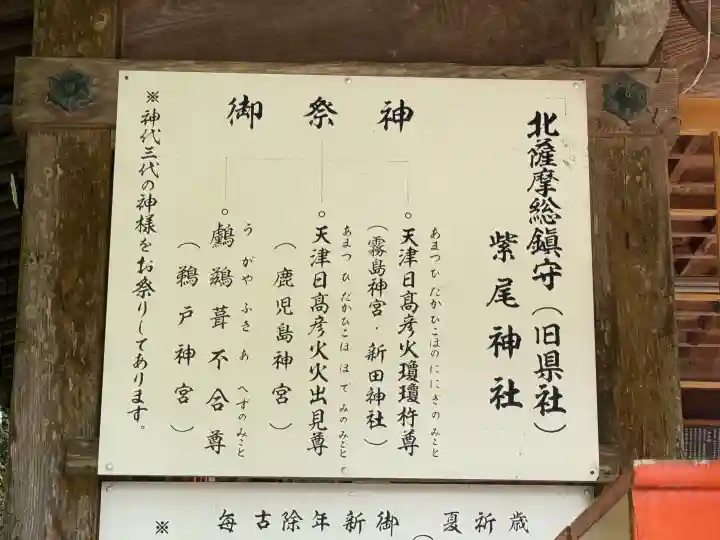 「北薩摩総鎮守（旧県社）
紫尾神社
御祭神
あまつひだかひこほのににぎのみこと
。天津日高彦火瓊瓊杵尊
（霧島神宮・新田神社）
あまつひだかひこほほでみのみこと
。天津日高彦火火出見尊
（鹿児島神宮）
うがやふきあへずのみこと
。鸕鷀葺不合尊
（鵜戸神宮）
※神代三代の神様をお祭りしてあります。
歳
祈
夏（
御
新
年
除
古
毎
※